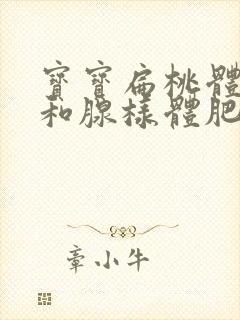 寶寶扁桃體
和腺樣體肥
章小牛